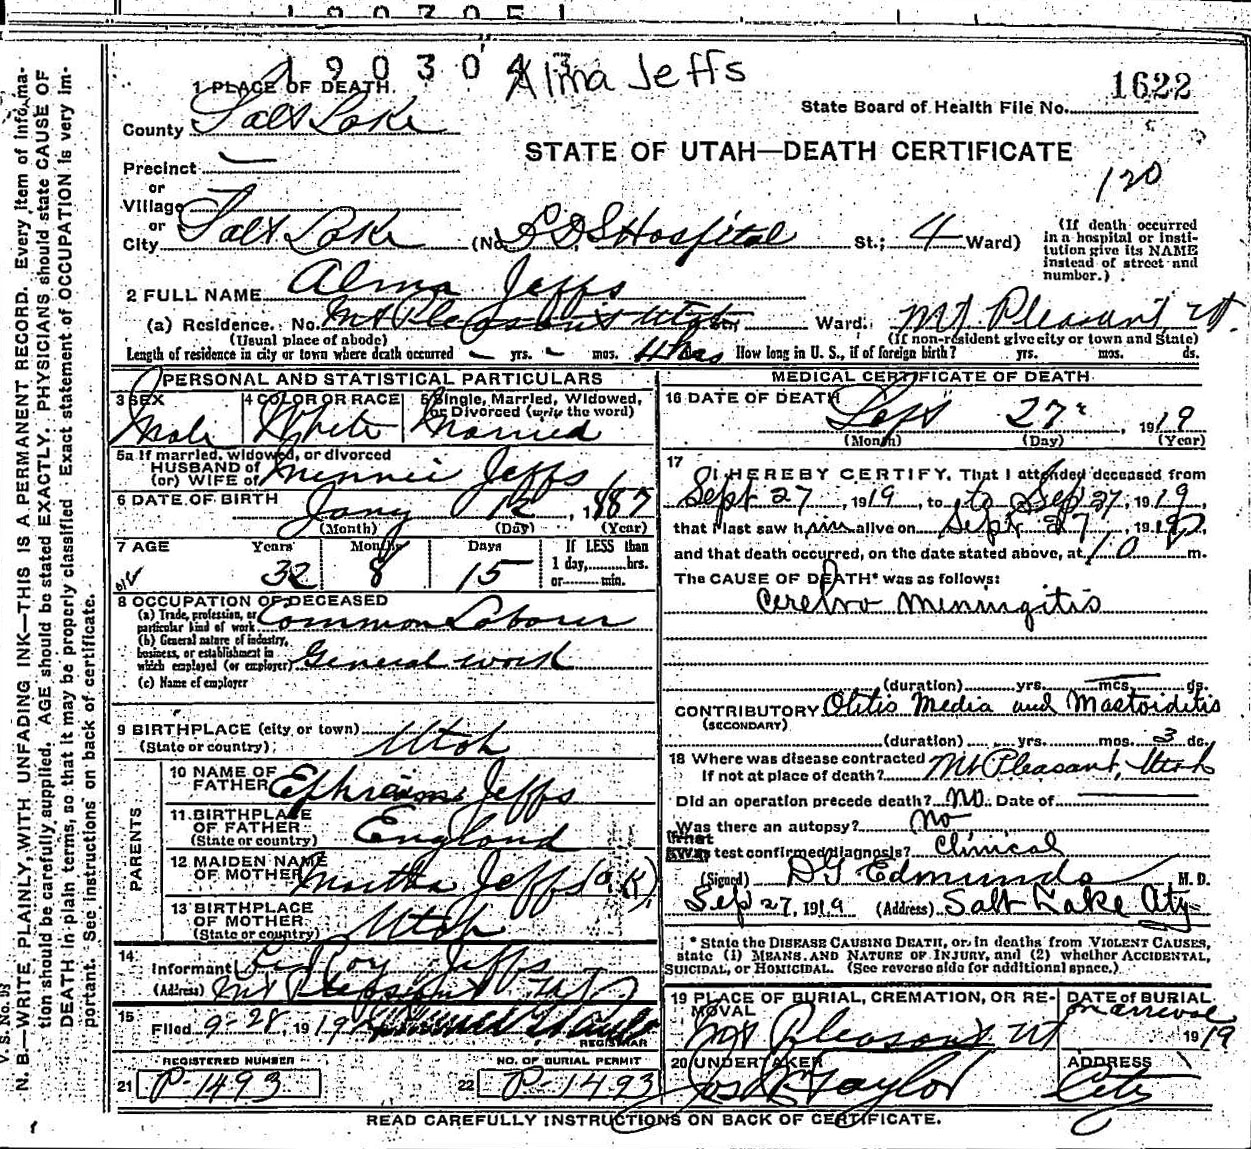 190304
Alma Jeffs
1 PLACE OF DEATH.
State Board of Health File No. 1622
County Salt Lake
STATE OF UTAH—DEATH CERTIFICATE
120
Precinct
or
Village
or
City Salt Lake (No. LDS Hospital St.; 4 Ward)
(If death occurred in a hospital or institution give its NAME instead of street and number.)
2 FULL NAME Alma Jeffs
(a) Residence. No. Mt Pleasant Utah Ward. Mt Pleasant Ut.
(Usual place of abode) (If non-resident give city or town and State)
Length of residence in city or town where death occurred - yrs. - mos. 4 hrs How long in U. S., if of foreign birth? yrs. mos. ds.
PERSONAL AND STATISTICAL PARTICULARS
3 SEX Male
4 COLOR OR RACE White
5 Single, Married, Widowed, or Divorced (write the word) Married
5a If married, widowed, or divorced
HUSBAND of
(or) WIFE of Minnie Jeffs
6 DATE OF BIRTH Jany 12, 1887
(Month) (Day) (Year)
7 AGE Years Months Days If LESS than
32 8 15 1 day, hrs.
or min.
8 OCCUPATION OF DECEASED
(a) Trade, profession, or particular kind of work Common Laborer
(b) General nature of industry, business, or establishment in which employed (or employer) General work
(c) Name of employer
9 BIRTHPLACE (city or town)
(State or country) Utah
PARENTS
10 NAME OF FATHER Ephraim Jeffs
11 BIRTHPLACE OF FATHER England
(State or country)
12 MAIDEN NAME OF MOTHER Martha Jeffs
13 BIRTHPLACE OF MOTHER Utah
(State or country)
14
Informant Roy Jeffs
(Address) Mt Pleasant Ut
15
Filed 9-28, 1919
REGISTRAR
REGISTERED NUMBER NO. OF BURIAL PERMIT
21 P-1493 22 P-1493
MEDICAL CERTIFICATE OF DEATH
16 DATE OF DEATH Sept 27, 1919
(Month) (Day) (Year)
17
I HEREBY CERTIFY, That I attended deceased from
Sept 27, 1919, to to Sep 27, 1919,
that I last saw him alive on Sept 27, 1919,
and that death occurred, on the date stated above, at 10 m.
The CAUSE OF DEATH* was as follows:
Cerebro Meningitis
(duration) yrs. mos. ds.
CONTRIBUTORY Otitis Media and Mastoiditis
(SECONDARY)
(duration) yrs. mos. 3 ds.
18 Where was disease contracted
If not at place of death? Mt Pleasant, Utah
Did an operation precede death? no. Date of
Was there an autopsy? no
What test confirmed diagnosis? Clinical
(Signed) D G Edmunds M. D.
Sep 27, 1919 (Address) Salt Lake City
* State the DISEASE CAUSING DEATH, or in deaths from VIOLENT CAUSES, state (1) MEANS AND NATURE OF INJURY, and (2) whether ACCIDENTAL, SUICIDAL, or HOMICIDAL. (See reverse side for additional space.)
19 PLACE OF BURIAL, CREMATION, OR REMOVAL
Mt Pleasant Ut
DATE of BURIAL
on arrival 1919
20 UNDERTAKER
Jos Taylor
ADDRESS
City
READ CAREFULLY INSTRUCTIONS ON BACK OF CERTIFICATE.
N. B.—WRITE PLAINLY, WITH UNFADING INK—THIS IS A PERMANENT RECORD. Every item of information should be carefully supplied. AGE should be stated EXACTLY. PHYSICIANS should state CAUSE OF DEATH in plain terms, so that it may be properly classified. Exact statement of OCCUPATION is very important. See instructions on back of certificate.